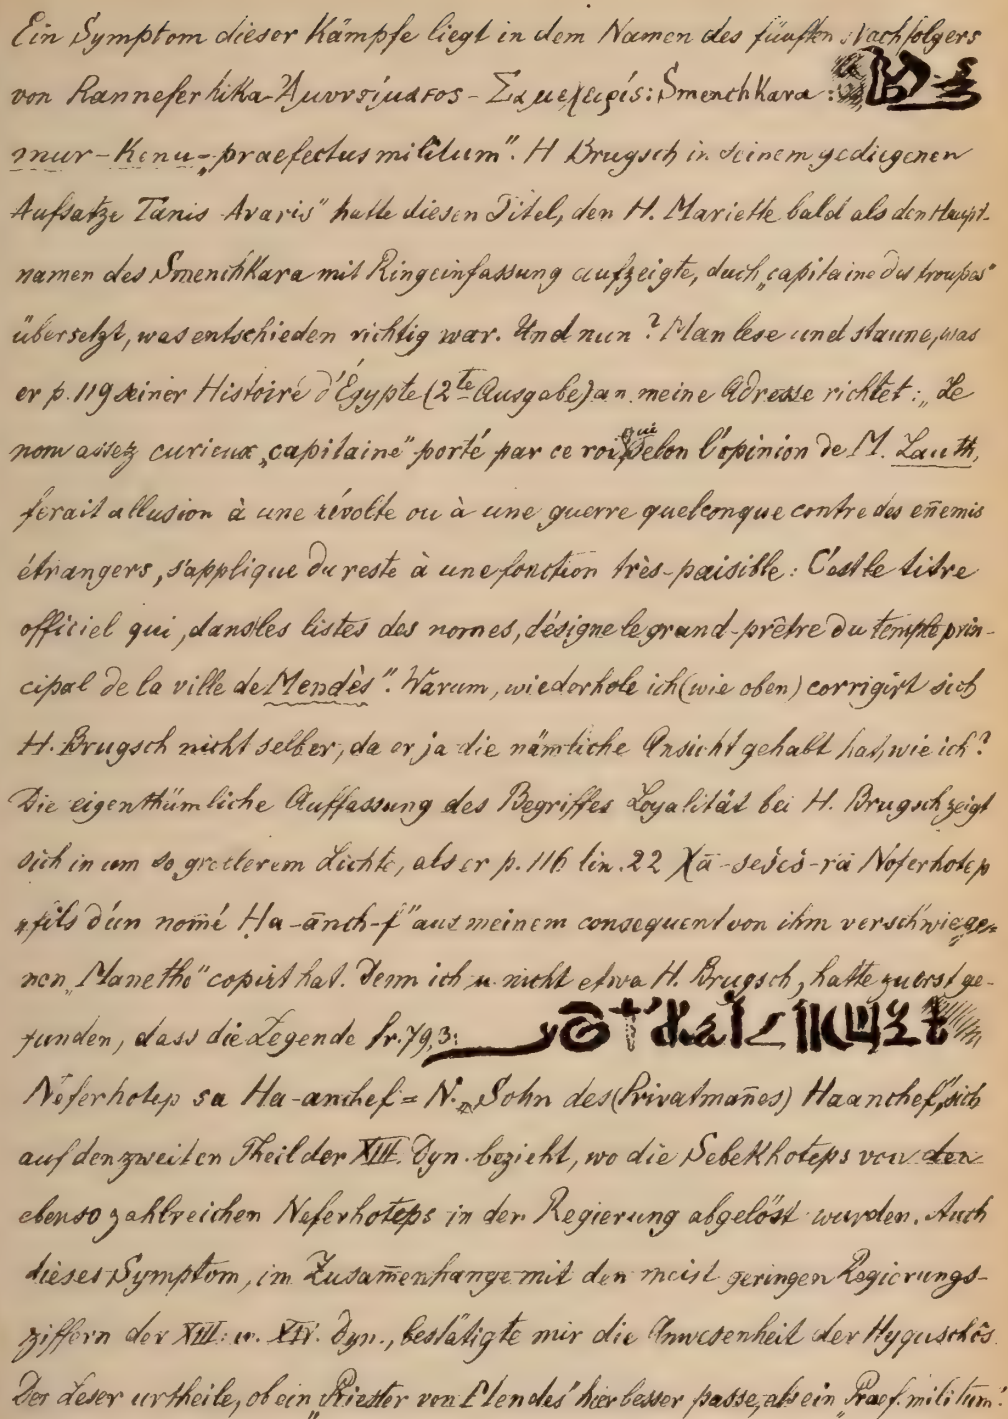 Ein Symptom dieser Kämpfe liegt in dem Namen des fünften Nachfolgers
von Ranneferhika- – Σεμεχερίς: SmenchKara:
mur-Kenu- „praefectus militum“. H Brugsch in seinem gediegenen
Aufsatze Tanis Avaris“ hatte diesen Titel, den H. Mariette bald als den Haupt-
namen des SmenchKara mit Ringeinfassung aufzeigte, durch „capitaine des troupes“
übersetzt, was entschieden richtig war. Und nun? Man lese und staune, was
er p. 119 seiner Histoire d'Égypte (2te Ausgabe) an meine Adresse richtet: „Le
nom assez curieux „capitaine“ porté par ce roi qui selon l'opinion de M. Lauth,
ferait allusion à une révolte ou à une guerre quelconque contre des en̄emis
étrangers, s'applique du reste à une fonction très-paisible: C'est le titre
officiel qui, dans les listes des nomes, désigne le grand-prêtre du temple prin-
cipal de la ville de Mendès“. Warum, wiederhole ich (wie oben) corrigirt sich
H. Brugsch nicht selber, da er ja die nämliche Ansicht gehabt hat, wie ich?
Die eigenthümliche Auffassung des Begriffes Loyalität bei H. Brugsch zeigt
sich in um so grellerem Lichte, als er p. 116 lin. 22 Xā-seses-rā Noferhotep
„fils d'un nom̄é Ha-ānch-f“ aus meinem consequent von ihm verschwiege-
nen „Manetho“ copirt hat. Denn ich u. nicht etwa H. Brugsch, hatte zuerst ge-
funden, dass die Legende fr. 79, 3:
Neferhotep sa Ha-anchef = N. „Sohn des (Privatman̄es) Haanchef“, sich
auf den zweiten Theil der XIII. Dyn. bezieht, wo die SebekHoteps von den
ebenso zahlreichen Neferhoteps in der Regierung abgelöst wurden. Auch
dieses Symptom, im Zusam̄enhange mit den meist geringen Regierungs-
ziffern der XIII. u. XIV. Dyn., bestätigte mir die Anwesenheit der Hyquschôs.
Der Leser urtheile, ob ein „Priester von Mendes“ hier besser passe, als ein „Praef. militum“